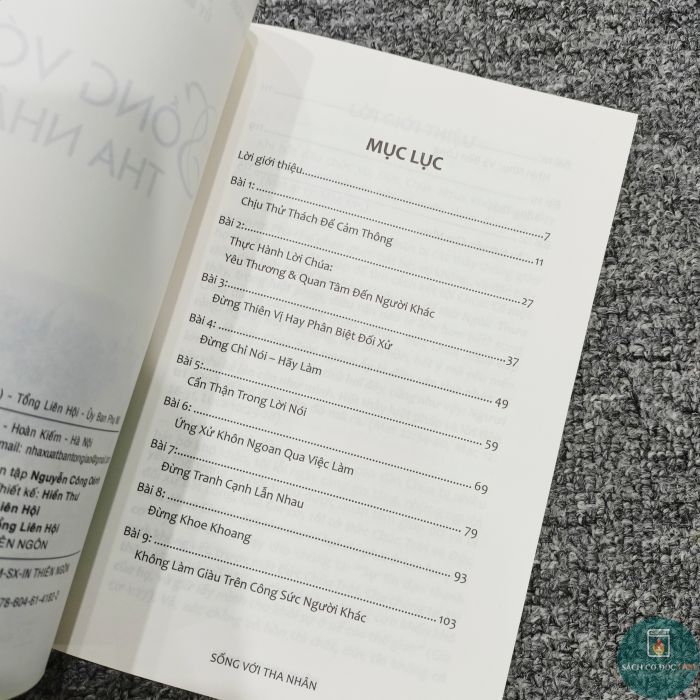 MỤC LỤC
Lời giới thiệu.......7
Bài 1:.......11
Chịu Thử Thách Để Cảm Thông
Bài 2:.......27
Thực Hành Lời Chúa:
Yêu Thương & Quan Tâm Đến Người Khác
Bài 3:.......37
Đừng Thiên Vị Hay Phân Biệt Đối Xử
Bài 4:.......49
Đừng Chỉ Nói – Hãy Làm
Bài 5:.......59
Cẩn Thận Trong Lời Nói
Bài 6:.......69
Ứng Xử Khôn Ngoan Qua Việc Làm
Bài 7:.......79
Đừng Tranh Cạnh Lẫn Nhau
Bài 8:.......93
Đừng Khoe Khoang
Bài 9:.......103
Không Làm Giàu Trên Công Sức Người Khác
SỐNG VỚI THA NHÂN
SỐNG VỚI
THA NHÂN
) - Tổng Liên Hội - Ủy Ban
- Hoàn Kiếm - Hà Nội
mail: nhaxuatbantongiao@gmail.com
tập Nguyễn Công
Thiết kế: Hiền Thư
Liên Hội
Tổng Liên Hội
THIÊN NGÔN
-SX-IN THIÊN NGÔN
78-604-61-4182-2
SÁCH CƠ ĐỐC